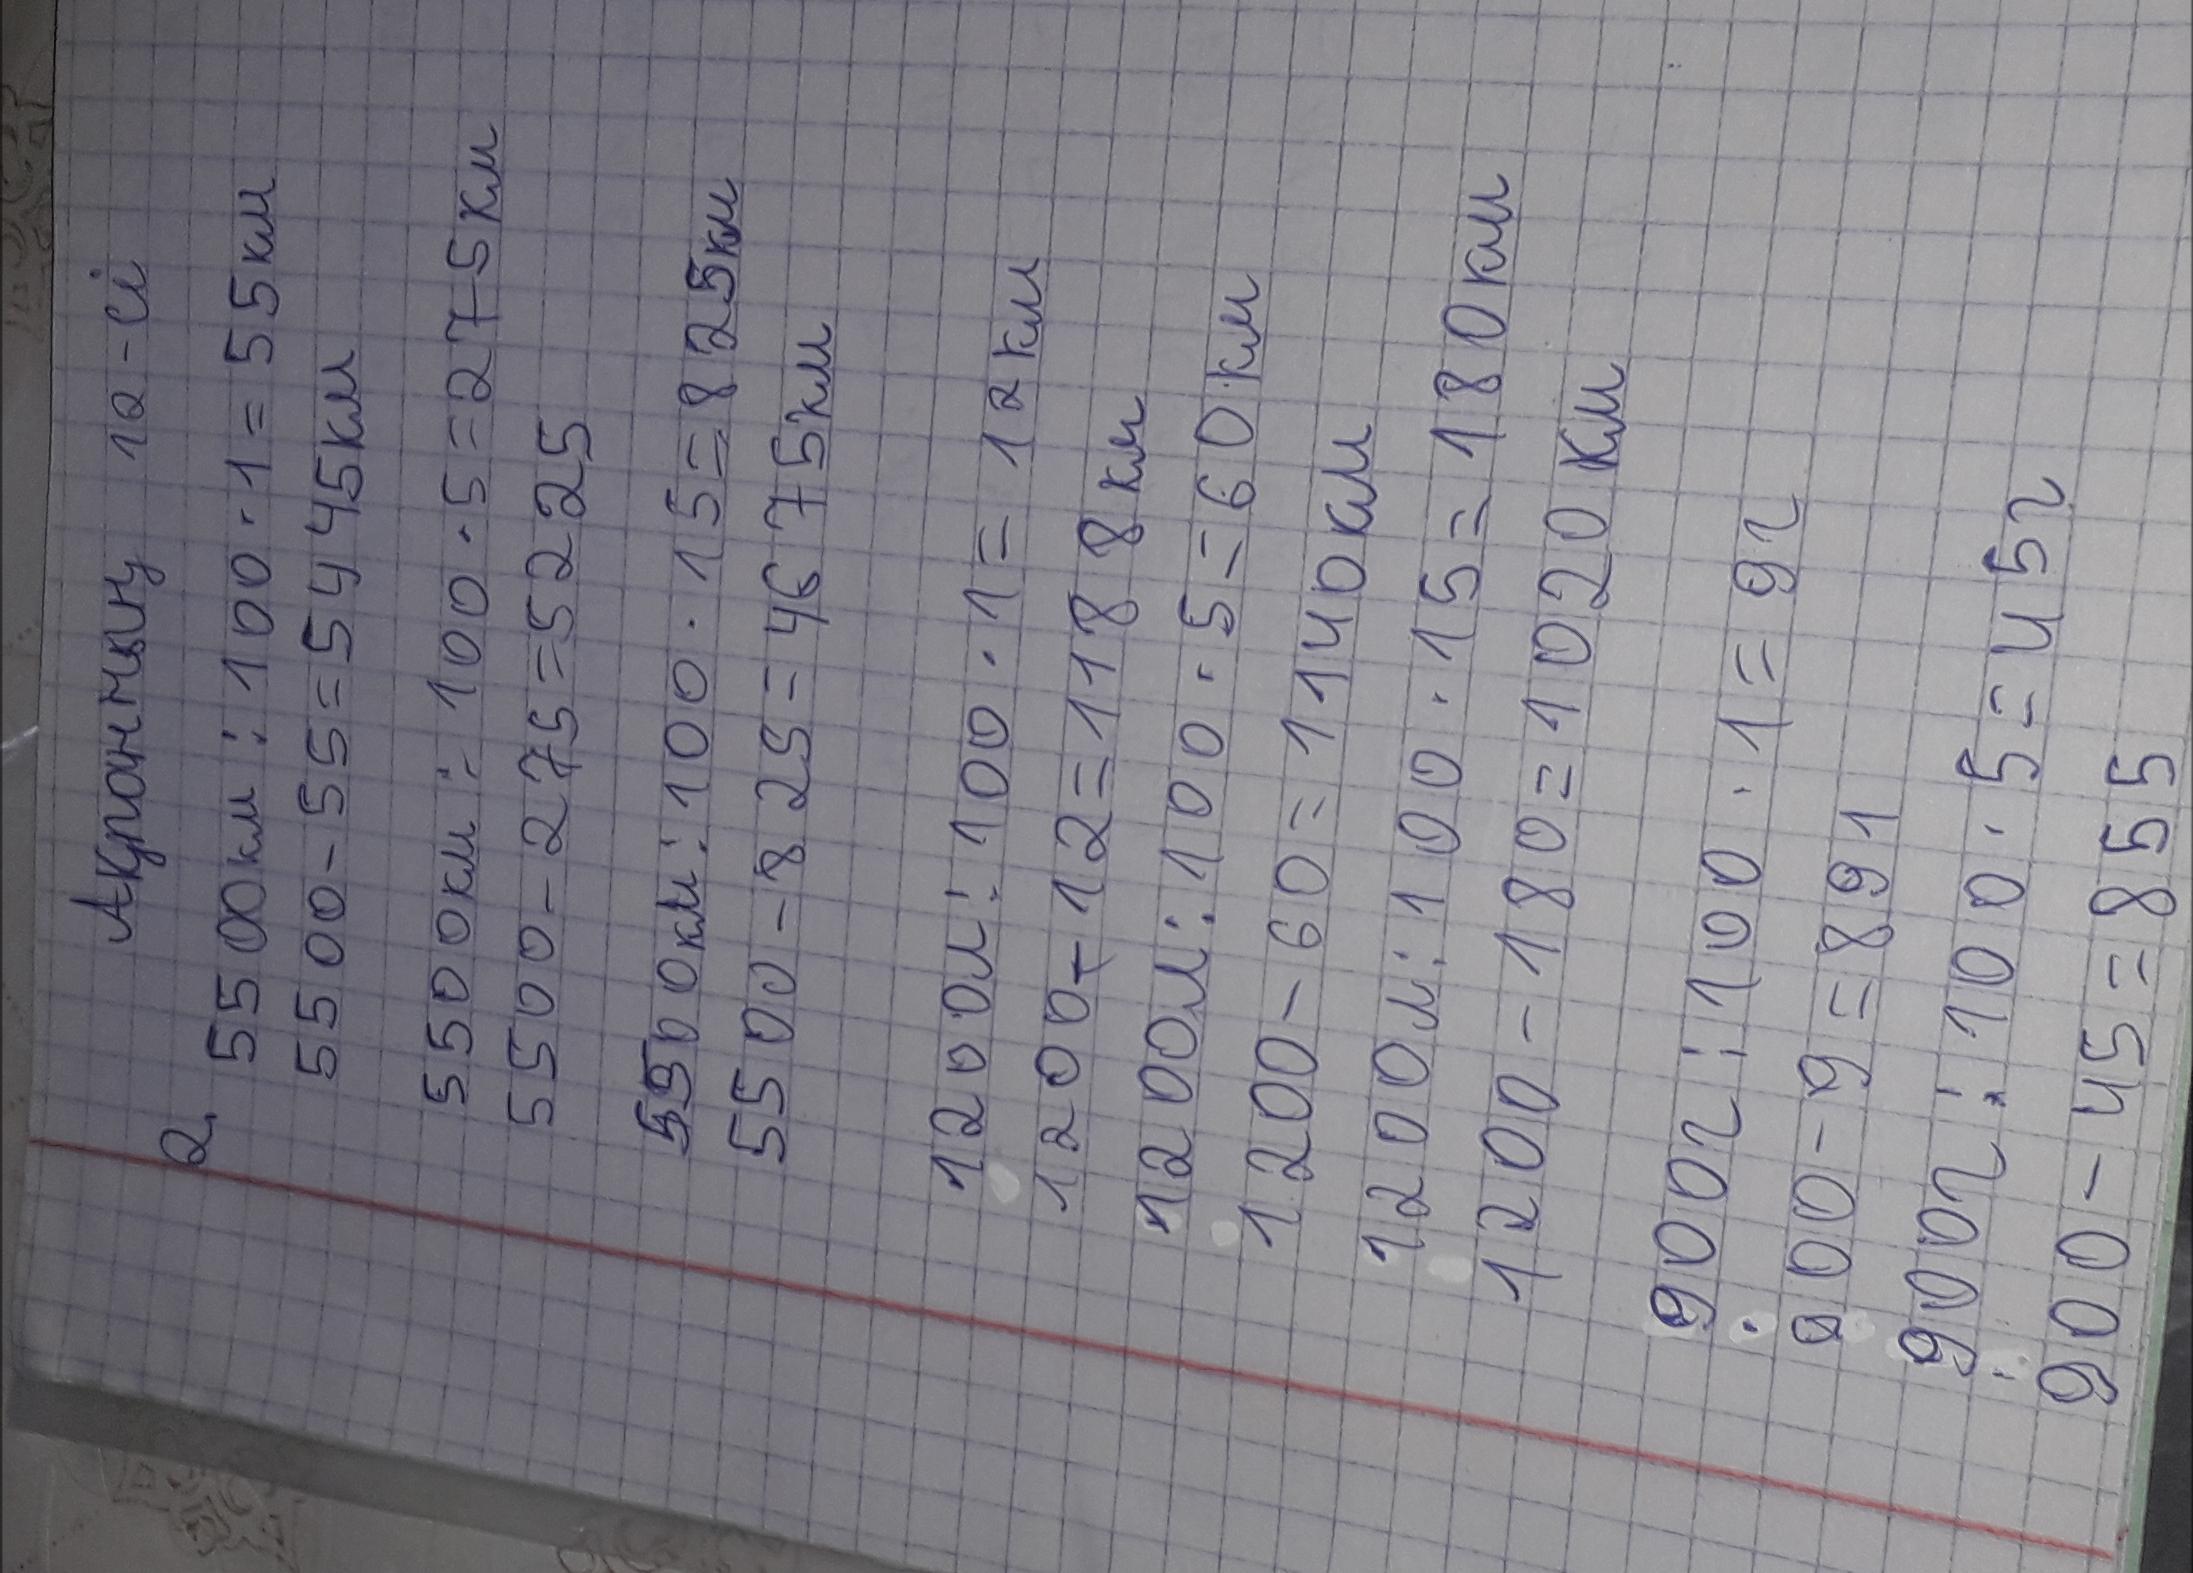 Ақпанның 12-сі
2. 5500км:100·1=55км
5500-55=5445км
5500км:100·5=275км
5500-275=5225
5500км:100·15=825км
5500-825=4675км
1200м:100·1=12км
1200-12=1188км
1200м:100·5=60км
1200-60=1140км
1200м:100·15=180км
1200-180=1020км
900г:100·1=9г
900-9=891
900г:100·5=45г
900-45=855